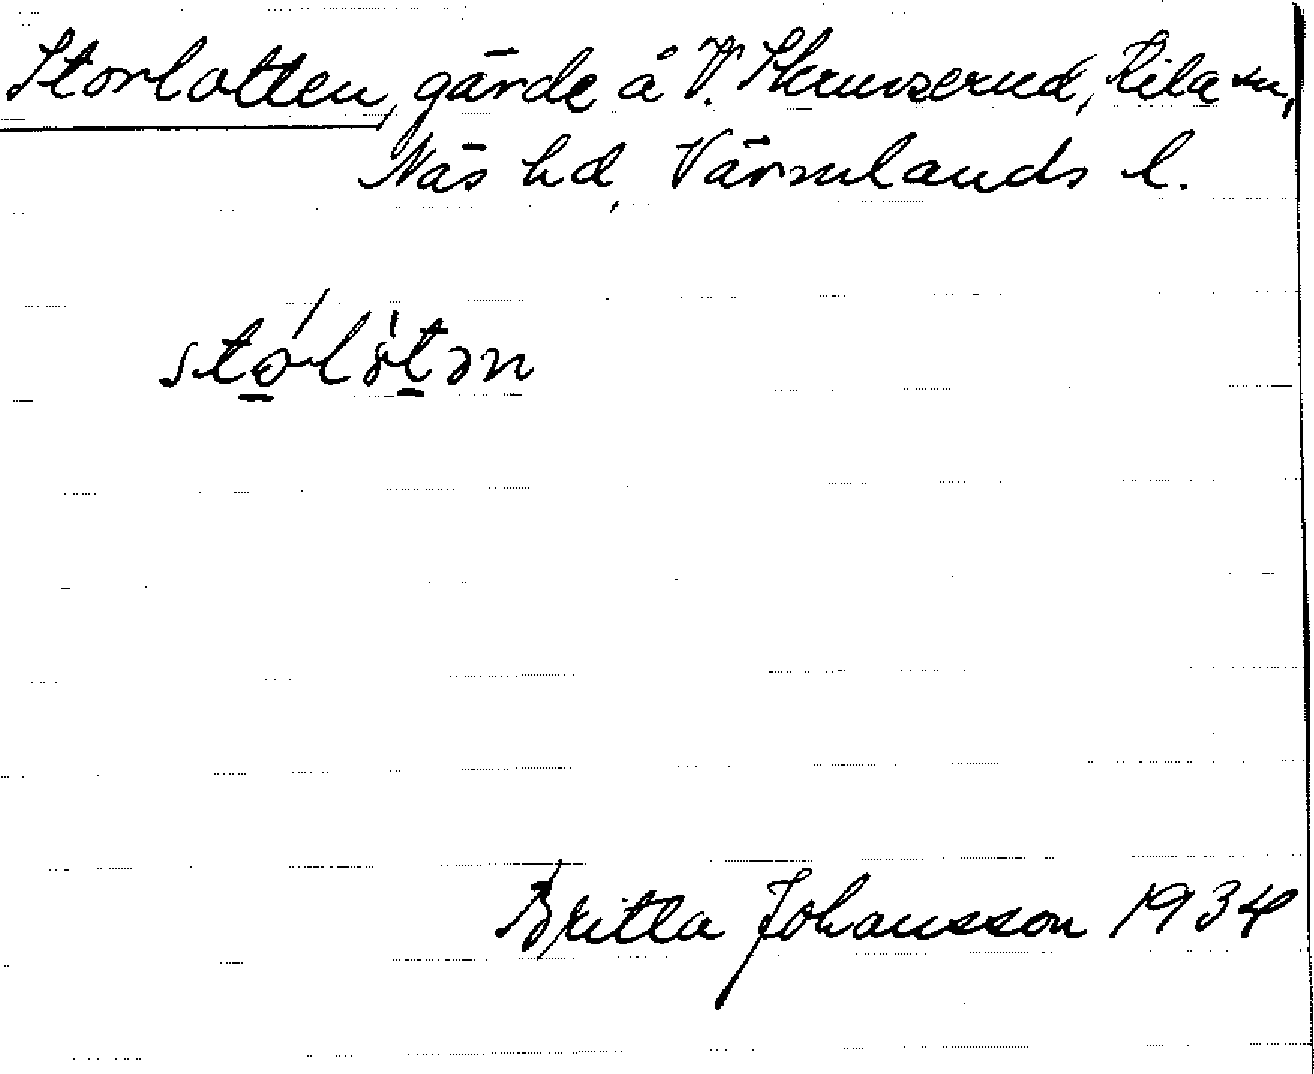 Storlotten, gärde å V. Skruvserud, Kila sn,
Näs hd, Värmlands l.
stó̱lòṯən
Britta Johansson 1934